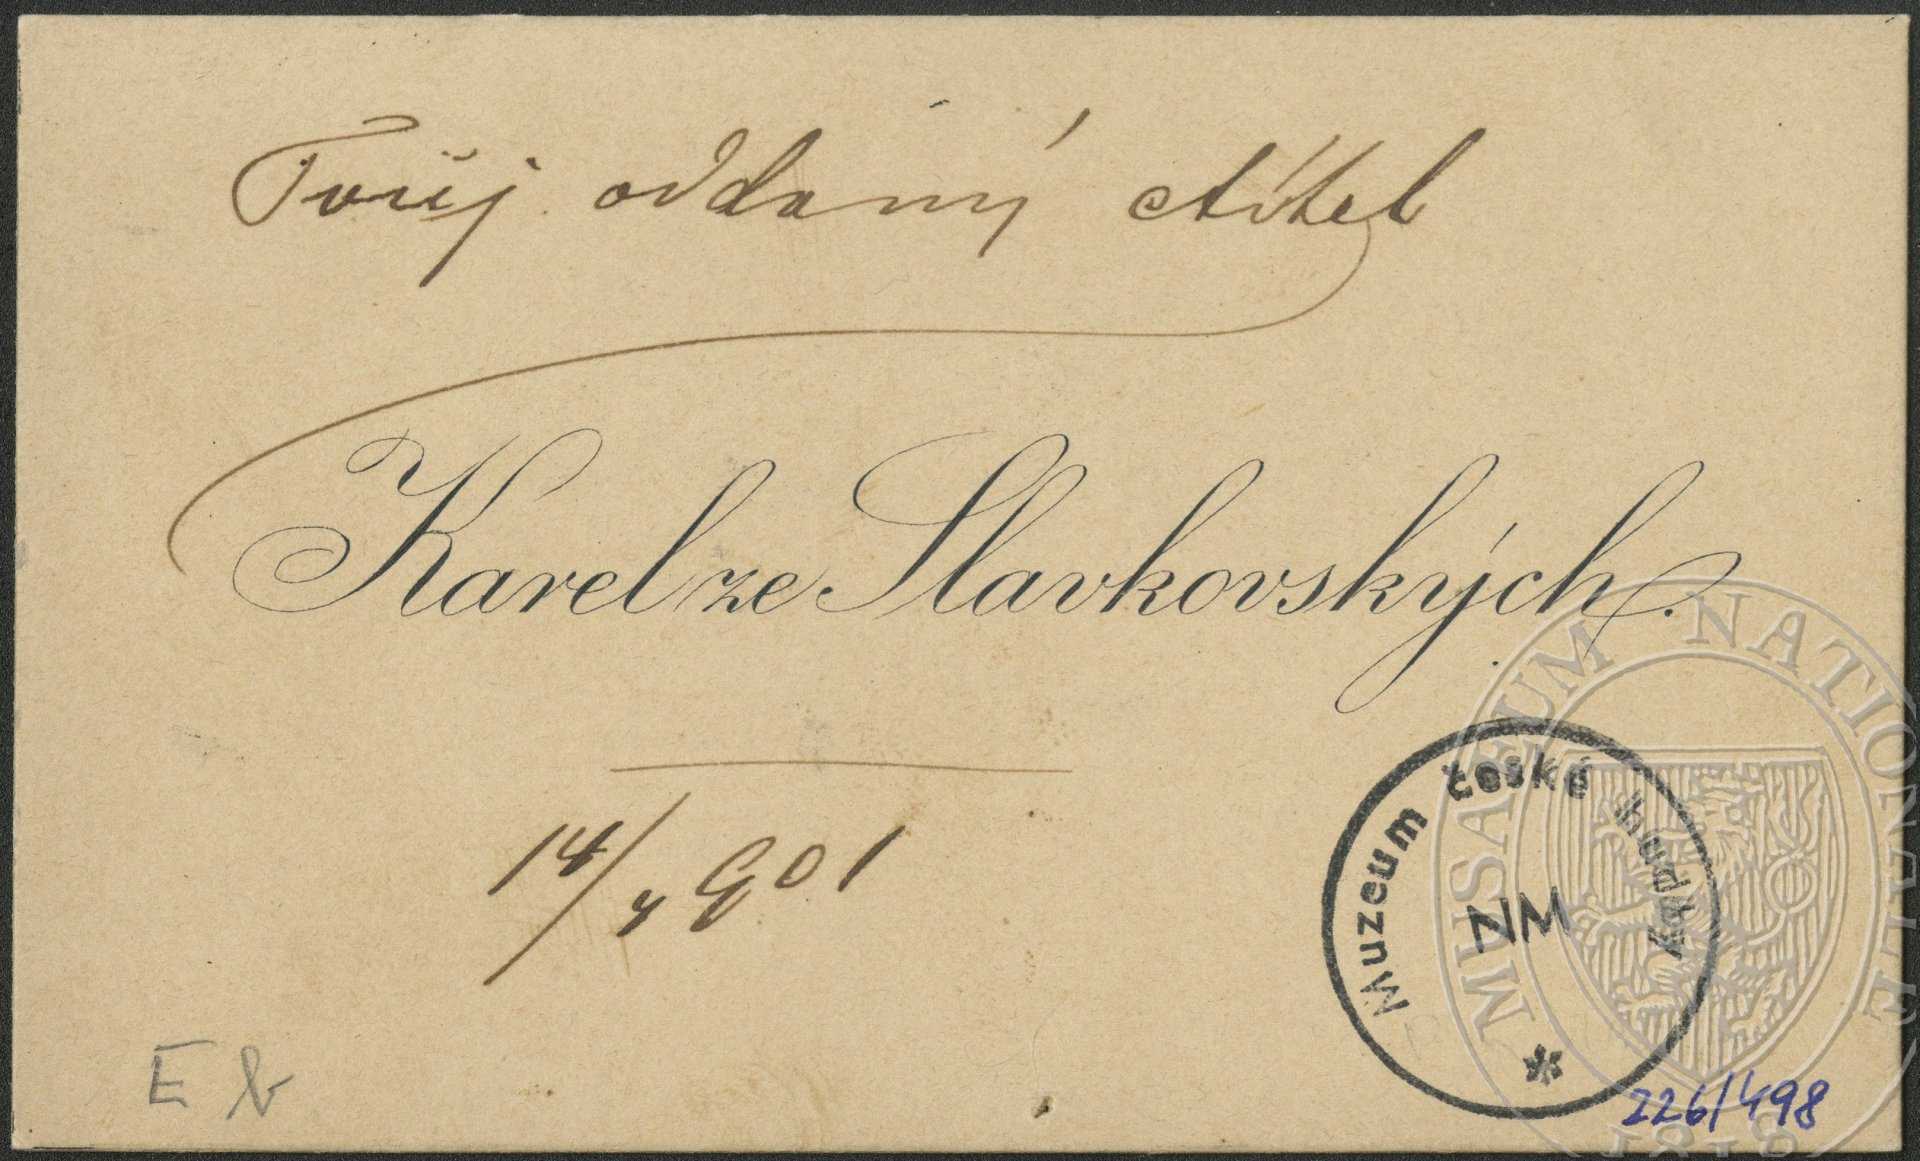 Tvůj oddaný ctitel
Karel ze Slavkovských.
14/4 901
Muzeum české hudby
NM
*
E b
226/498
MUSAEUM NATIONALE
1818